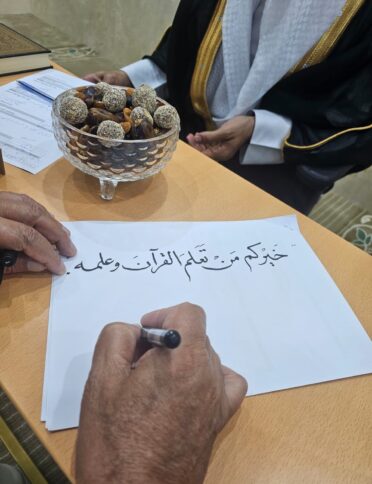 خَيْركم مَنْ تَعَلم القرآنَ وعلمه.